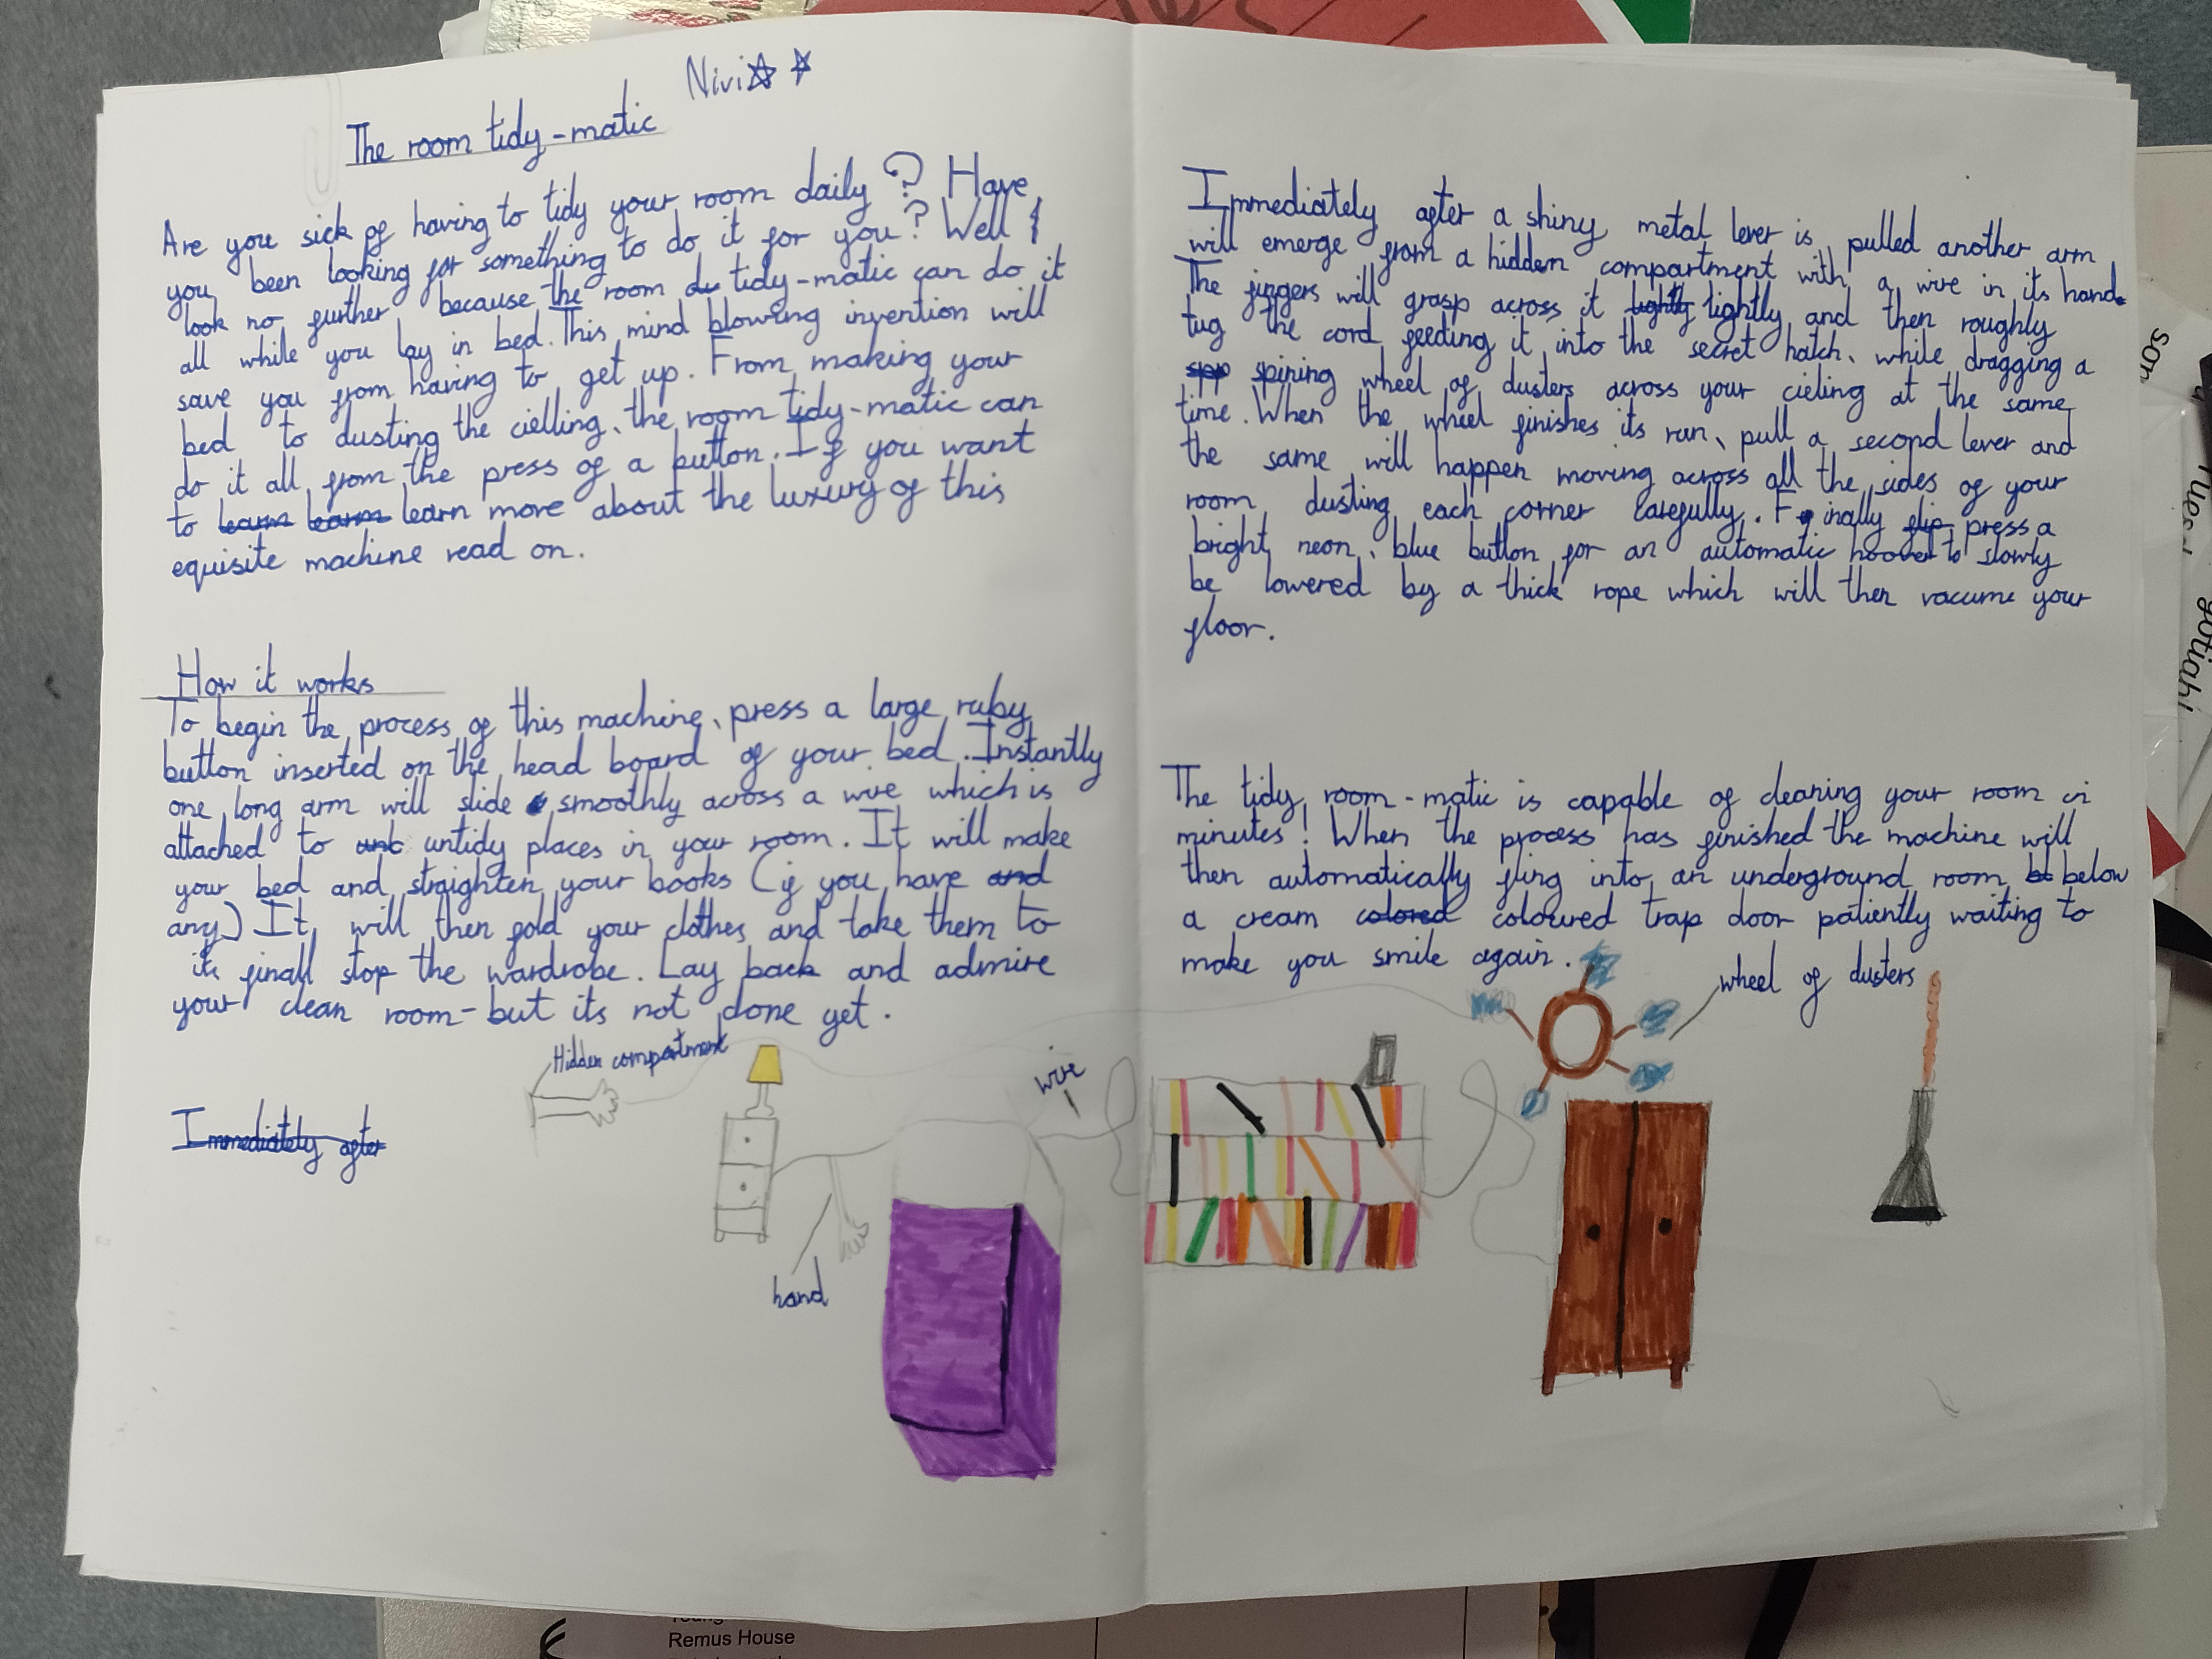 Nivi
The room tidy-matic
Are you sick of having to tidy your room daily? Have
you been looking for something to do it for you? Well
look no further because the room tidy-matic can do it
all while you lay in bed. This mind blowing invention will
save you from having to get up. From making your
bed to dusting the cielling, the room tidy-matic can
do it all from the press of a button. If you want
to learn learn learn more about the luxury of this
equisite machine read on.
How it works
To begin the process of this machine, press a large ruby
button inserted on the head board of your bed. Instantly
one long arm will slide smoothly across a wire which is
attached to unt untidy places in your room. It will make
your bed and straighten your books (if you have and
any) It will then fold your clothes and take them to
its finall stop the wardrobe. Lay back and admire
your clean room-but its not done yet.
Hidden compartment
wire
Immediately after
hand
Immediately after a shiny metal lever is pulled another arm
will emerge from a hidden compartment with a wire in its hand.
The fingers will grasp across it tightly and then roughly
tug the cord feeding it into the secret hatch, while dragging a
spining wheel of dusters across your cieling at the same
time. When the wheel finishes its run, pull a second lever and
the same will happen moving across all the sides of your
room dusting each corner carefully. Finally flip press a
bright neon, blue button for an automatic hoover to slowly
be lowered by a thick rope which will then vacume your
floor.
The tidy room-matic is capable of cleaning your room in
minutes! When the process has finished the machine will
then automatically fling into an underground room below
a cream colored coloured trap door patiently waiting to
make you smile again.
wheel of dusters
Remus House